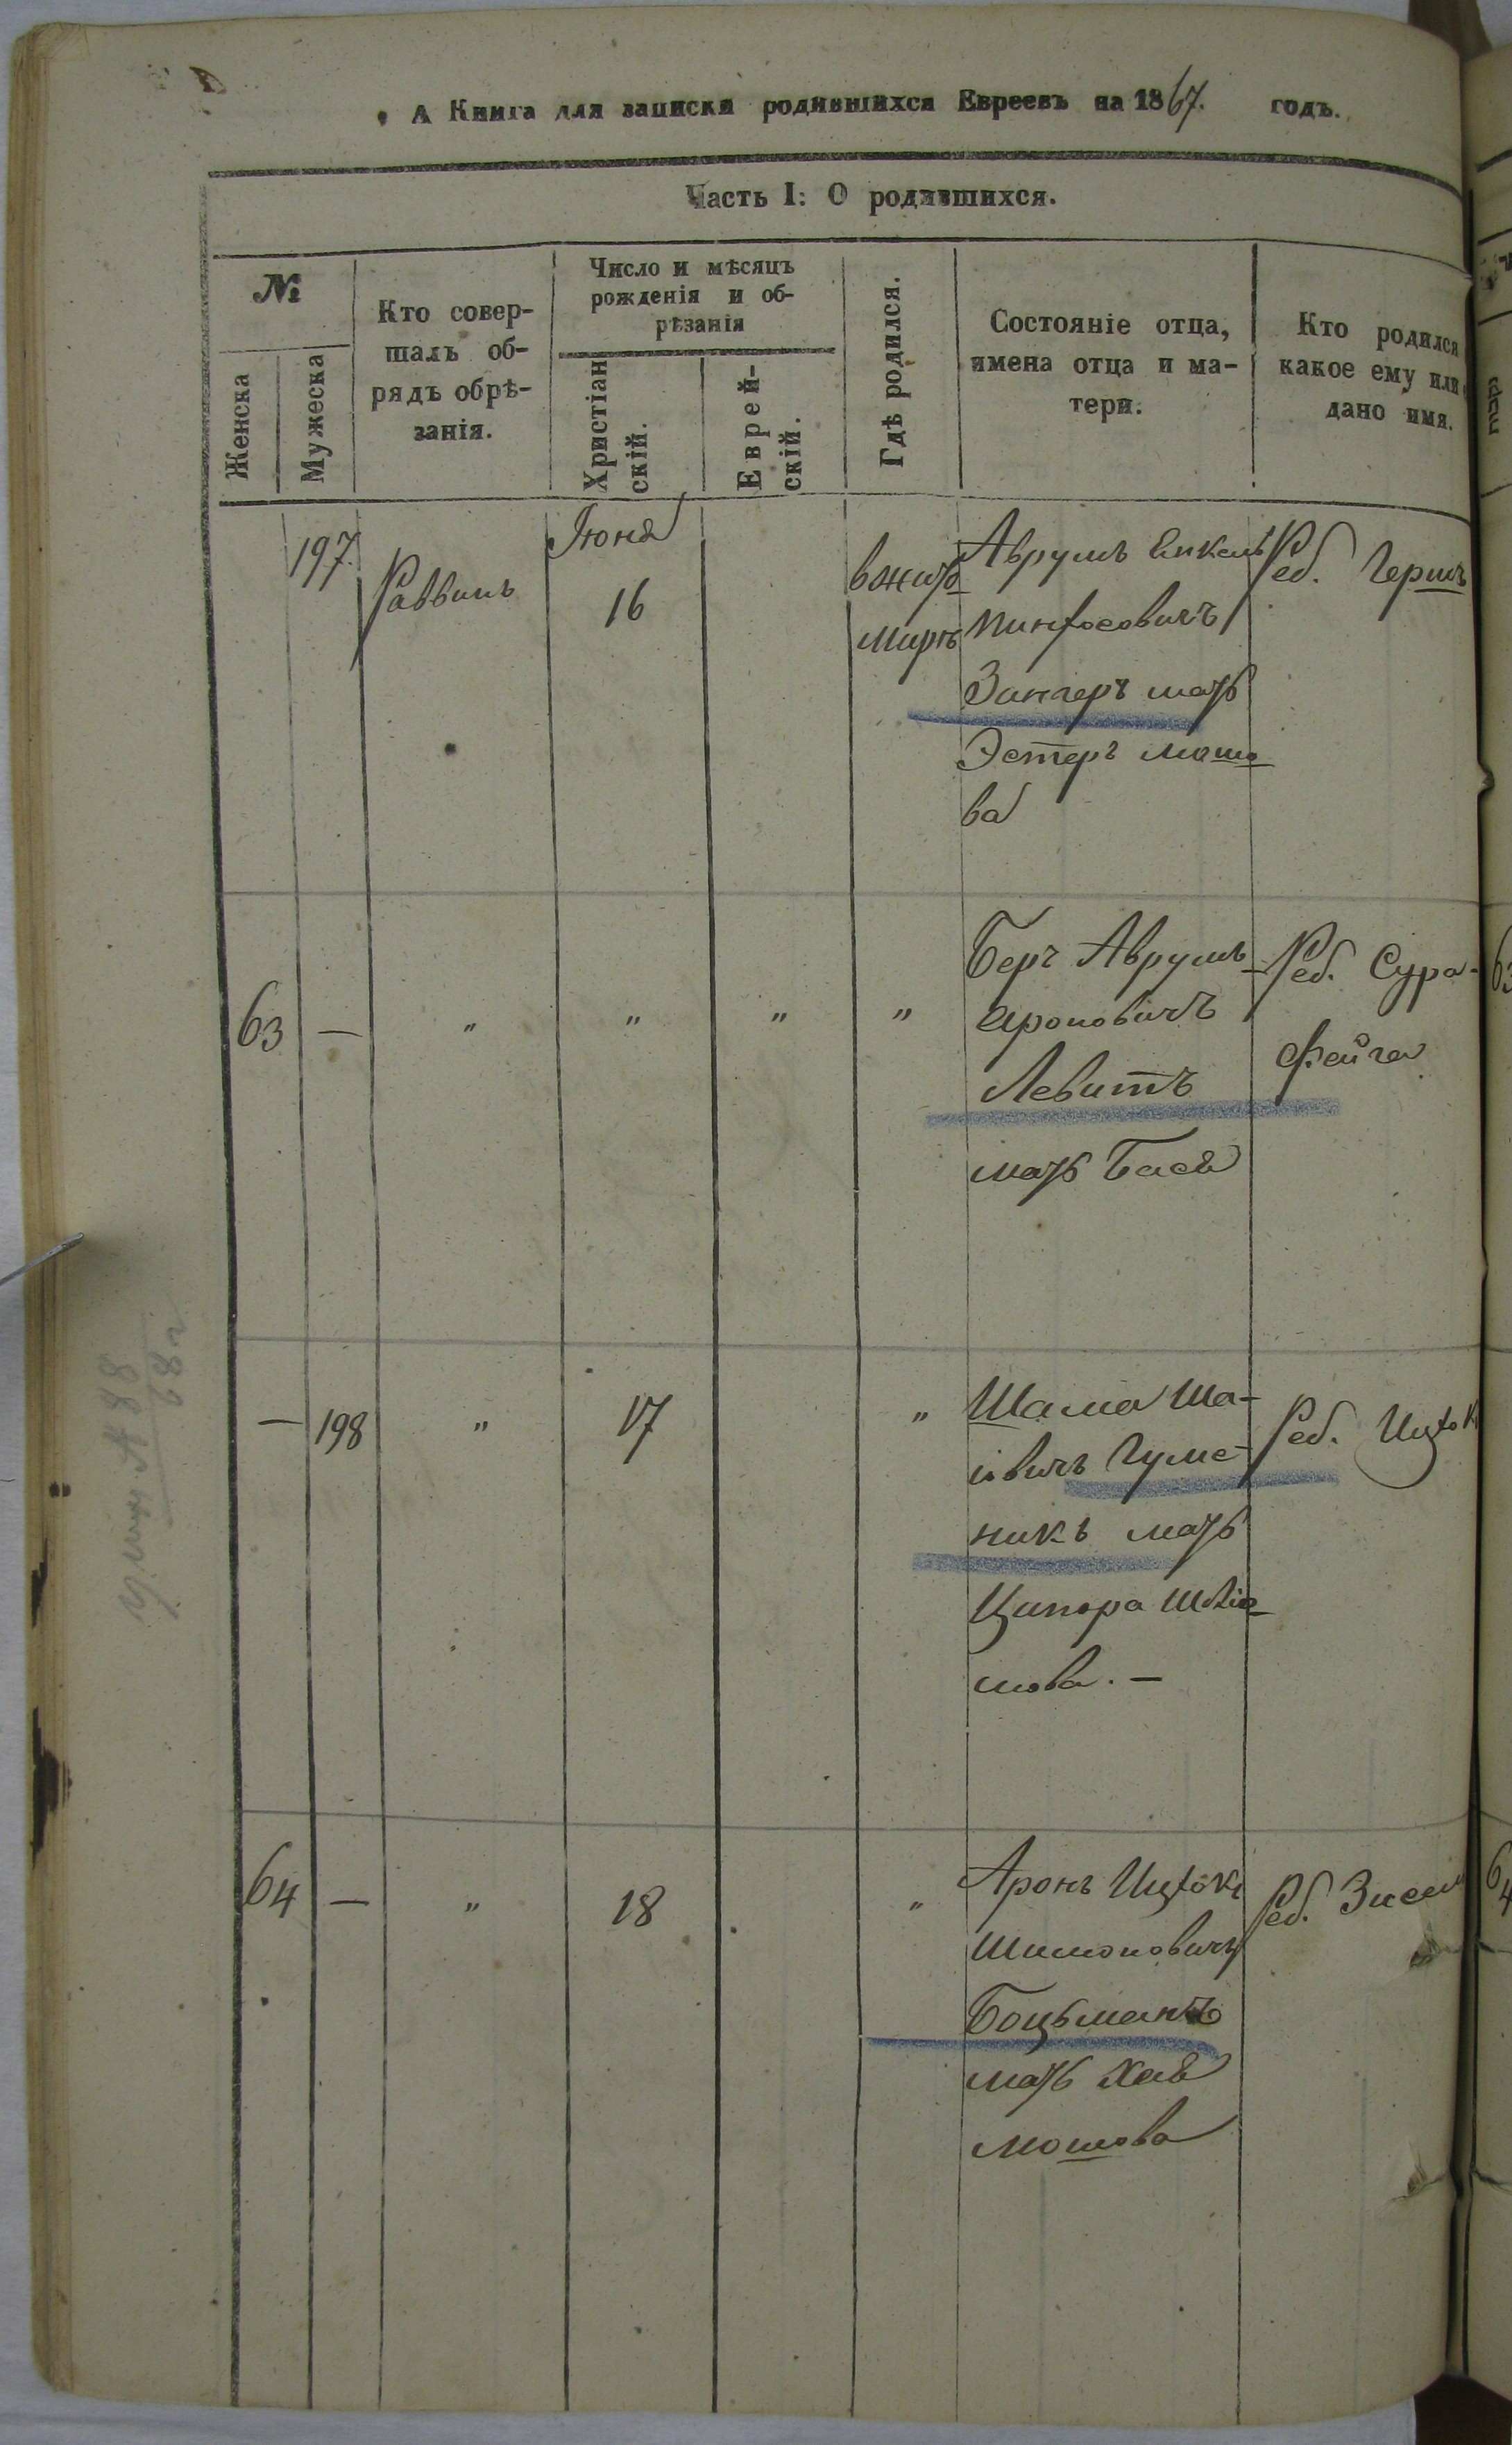 А Книга для записки родившихся Евреевъ на 1867. годъ.
Часть I: О родившихся.
№
Женска
Мужеска
Кто совер-
шалъ об-
рядъ обрѣ-
занія.
Число и мѣсяцъ
рожденія и об-
рѣзанія
Христіан
скій.
Еврей-
скій.
Гдѣ родился.
Состояніе отца,
имена отца и ма-
тери.
Кто родился
какое ему или
дано имя.
197
Раввинъ
Іюня
16
в Жито
мирѣ
Аврумъ Енкель
Пинхосовичъ
Зингеръ мать
Эстеръ Мошо
ва
Реб. Гершъ
63 — " " " "
Беръ Аврумъ-
Ароновичъ
Левитъ
мать Бася
Реб. Сура-
Фейга
— 198 " 17 "
Шама Ша-
івичъ Гуме-
никъ мать
Ципора Шлио-
мова. —
Реб. Ицхок
64 — " 18 "
Аронъ Ицхокъ
Шимоновичъ
Боцьманъ
мать Хая
Мошова
Реб. Зисель